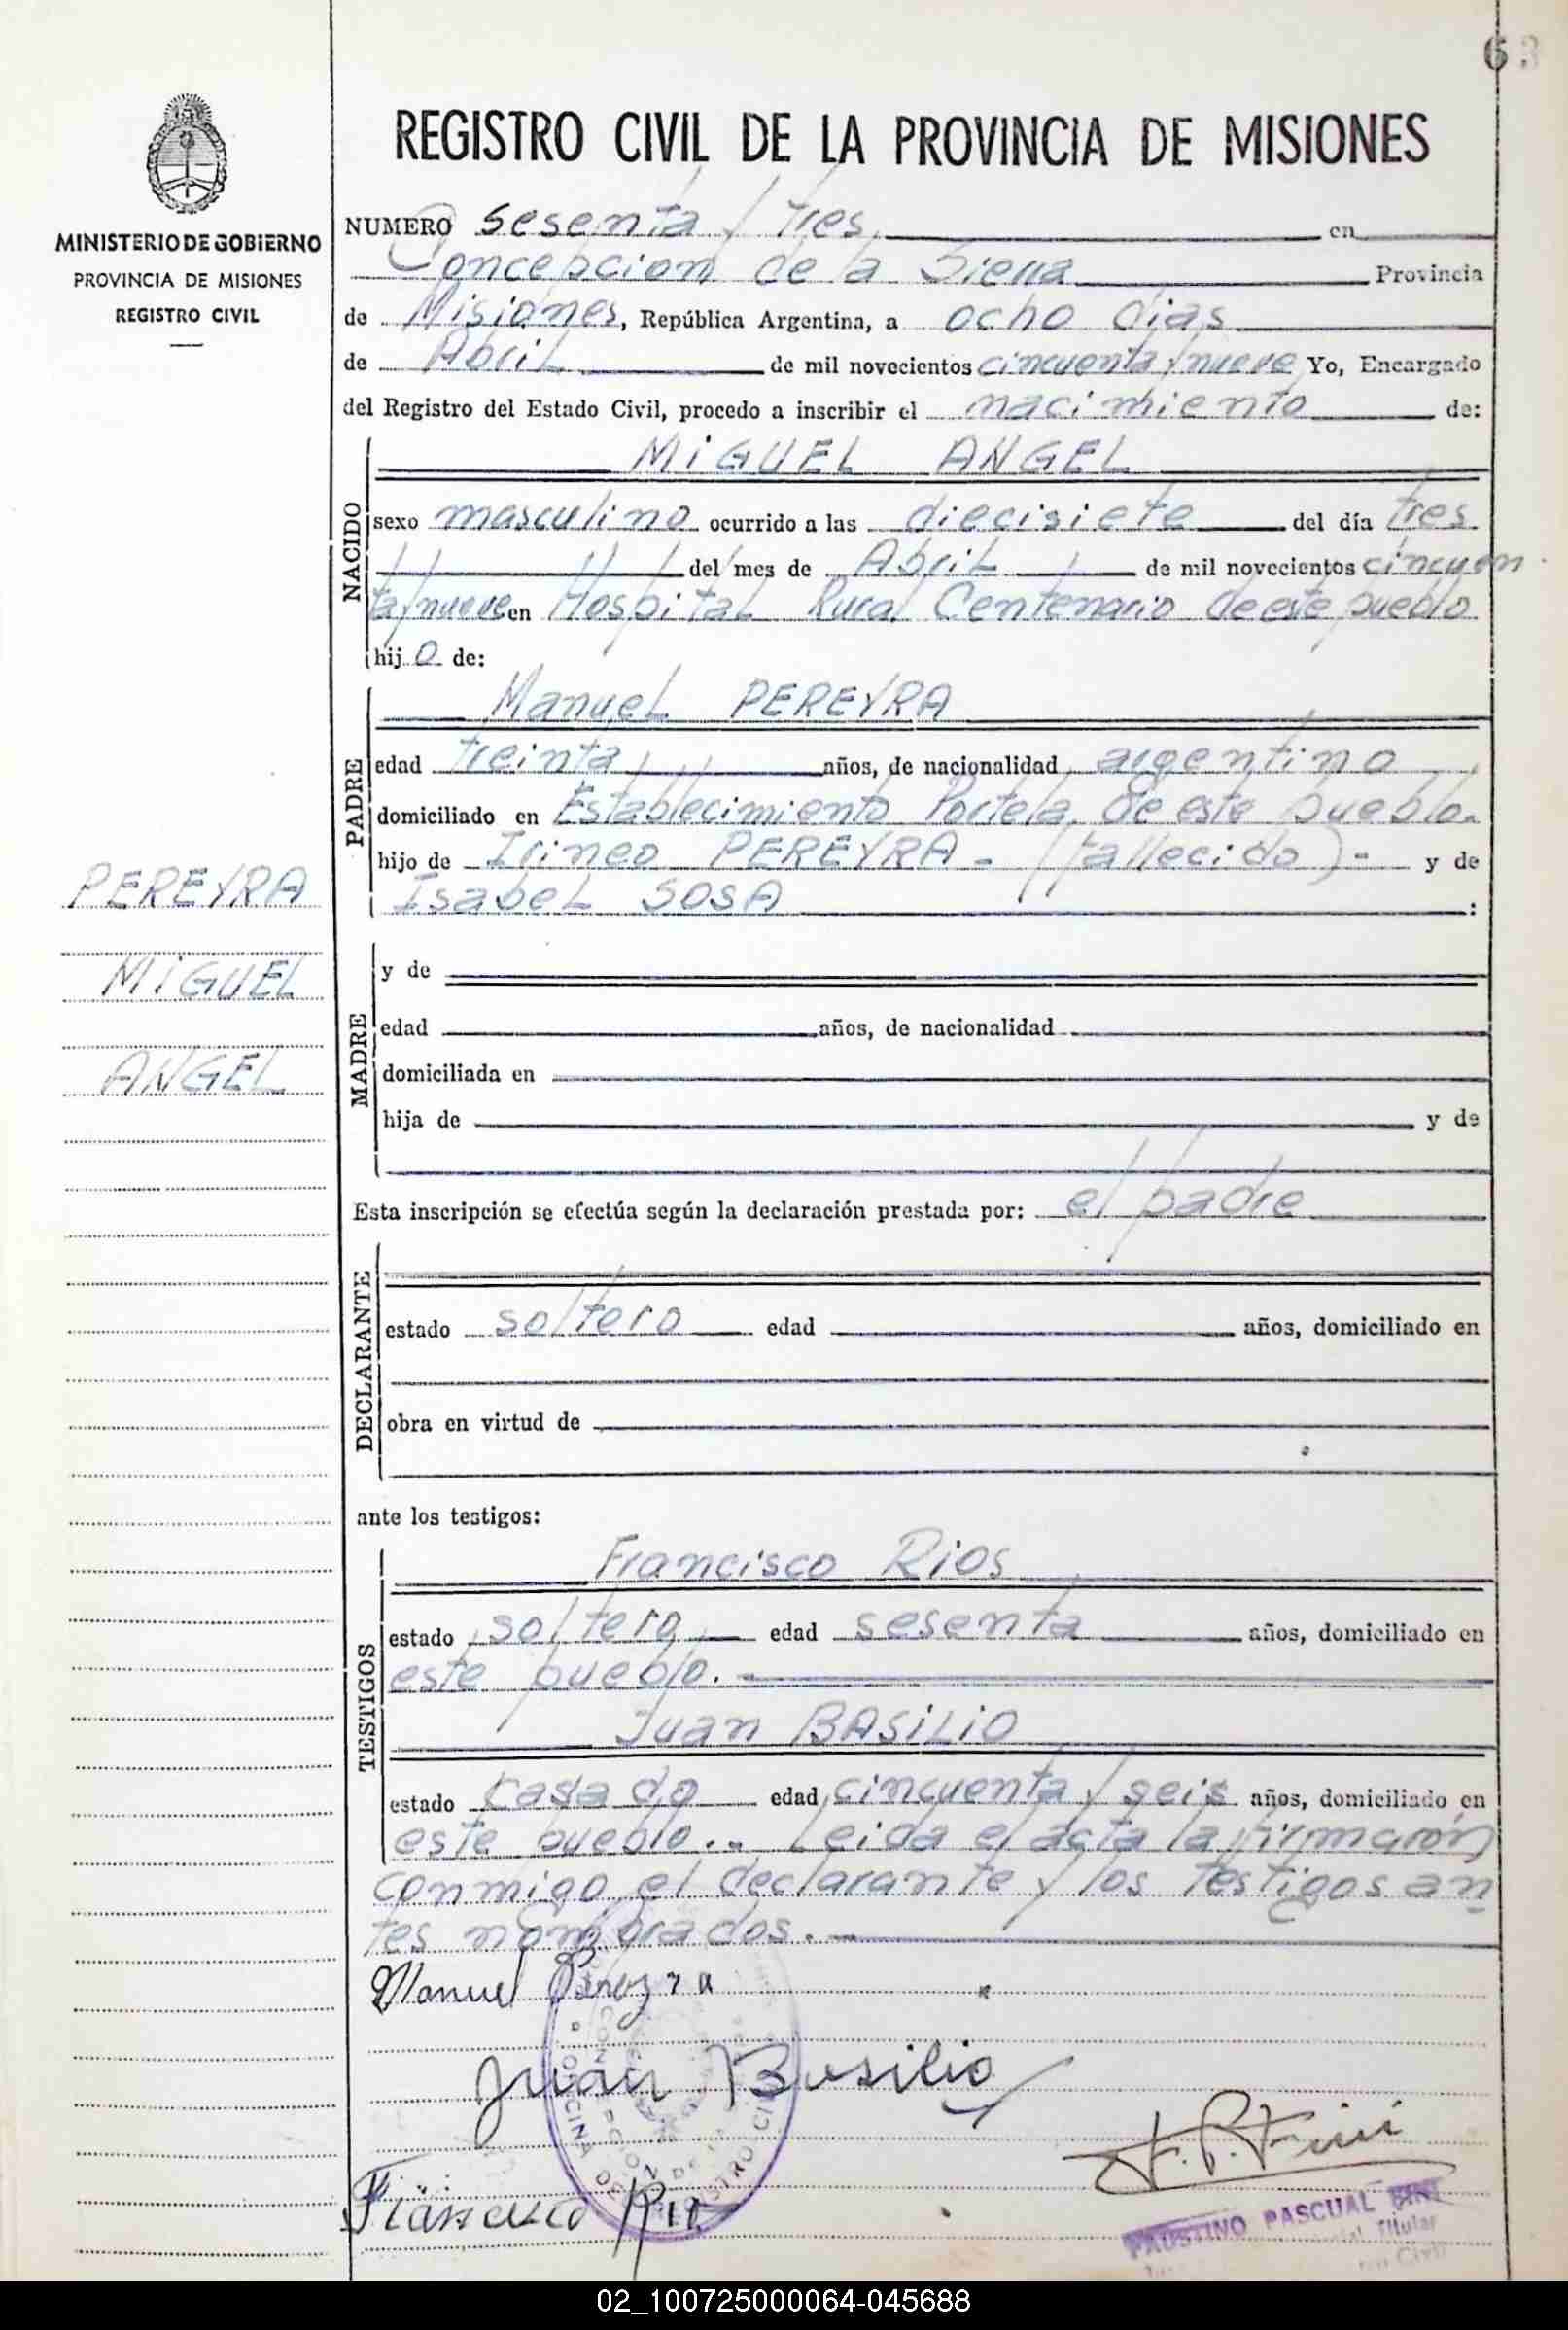 63
REGISTRO CIVIL DE LA PROVINCIA DE MISIONES
MINISTERIO DE GOBIERNO
PROVINCIA DE MISIONES
REGISTRO CIVIL
NUMERO sesenta y tres en
Concepcion de la Sierra Provincia
de Misiones, República Argentina, a ocho dias
de Abril de mil novecientos cincuenta y nueve Yo, Encargado
del Registro del Estado Civil, procedo a inscribir el nacimiento de:
NACIDO
MIGUEL ANGEL
sexo masculino ocurrido a las diecisiete del día tres
del mes de Abril de mil novecientos cincuen
ta y nueve en Hospital Rural Centenario de este pueblo
hijo de:
PADRE
Manuel PEREYRA
edad treinta años, de nacionalidad argentino
domiciliado en Establecimiento Portela de este pueblo.
hijo de Irineo PEREYRA - (fallecido) - y de
Isabel SOSA :
PEREYRA
MIGUEL
ANGEL
MADRE
y de
edad años, de nacionalidad
domiciliada en
hija de y de
Esta inscripción se efectúa según la declaración prestada por: el padre
DECLARANTE
estado soltero edad años, domiciliado en
obra en virtud de
ante los testigos:
TESTIGOS
Francisco Rios
estado soltero edad sesenta años, domiciliado en
este pueblo. -
Juan BASILIO
estado casado edad cincuenta y seis años, domiciliado en
este pueblo. - Leida el acta la firmaron
conmigo el declarante y los testigos an
tes nombrados. -
Manuel Pereyra
Juan Basilio
F. P. Fini
Francisco Rios
OFICINA DE REGISTRO CIVIL
CONCEPCION DE LA
FAUSTINO PASCUAL FINI
Titular
Civil
02_100725000064-045688